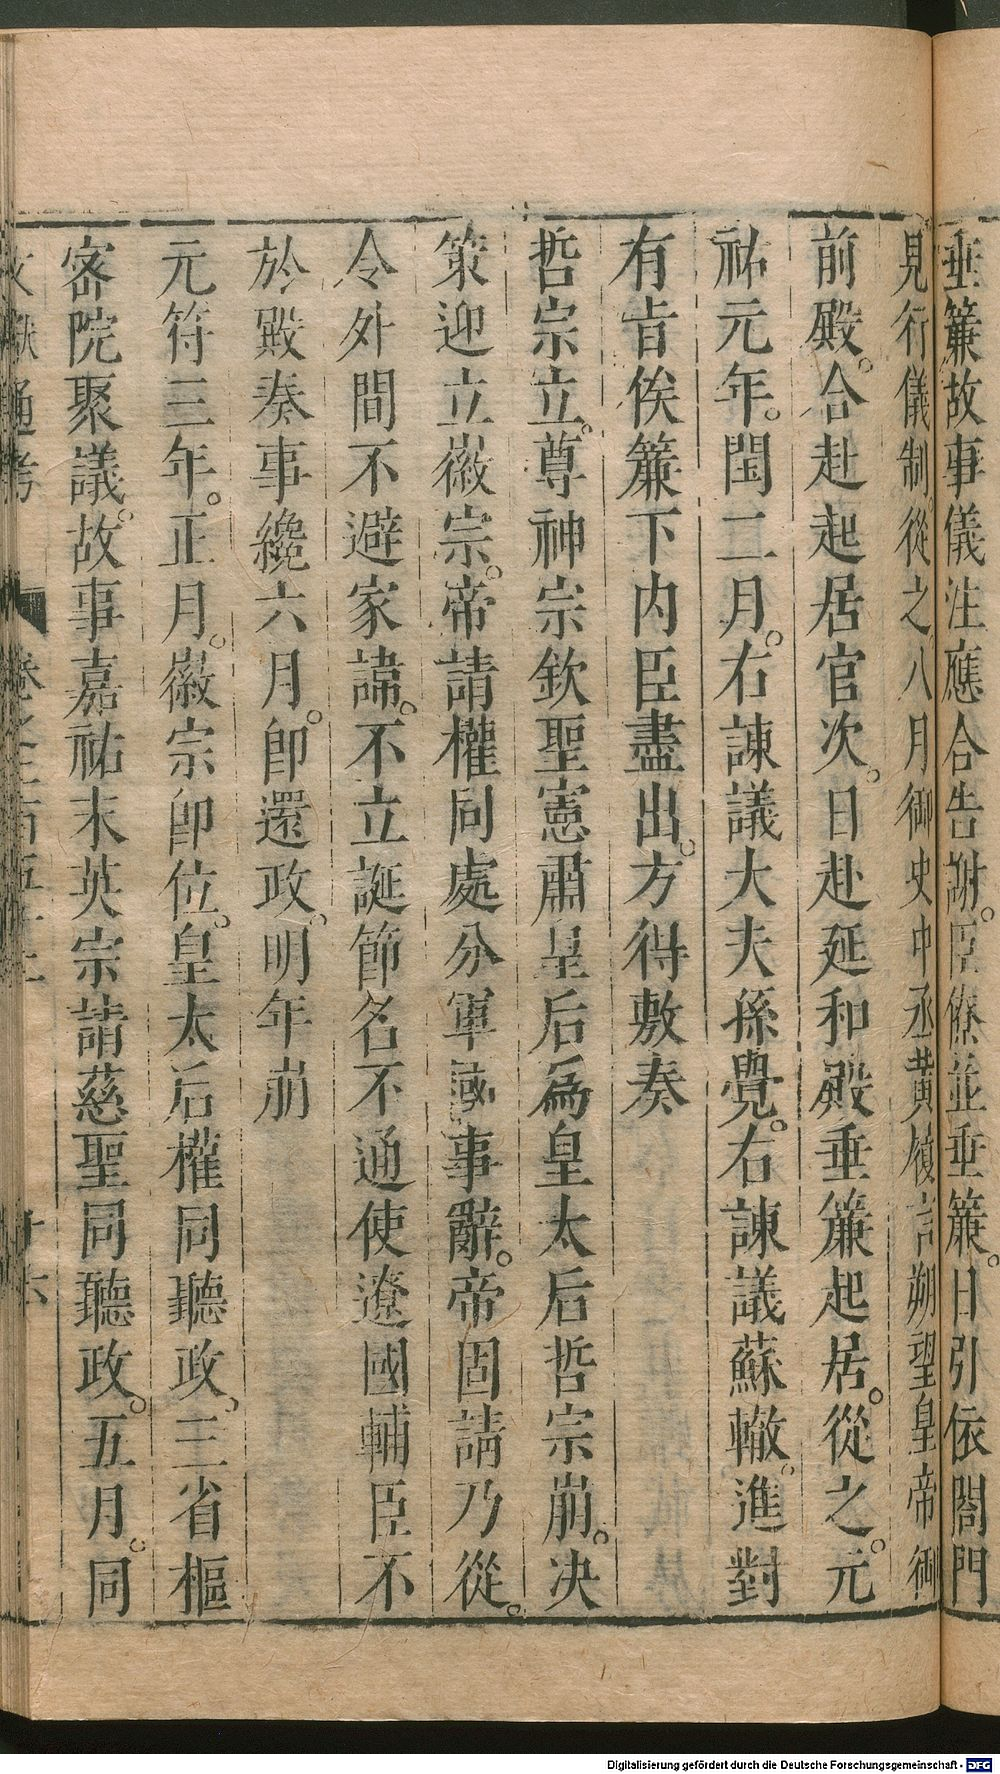 垂簾故事儀注應合告謝。臣僚並垂簾。日引依閤門
見行儀制從之八月御史中丞黃履言朔望皇帝御
前殿。合赴起居官次。日赴延和殿垂簾起居。從之。元
祐元年。閏二月。右諫議大夫孫覺。右諫議蘇轍。進對
有旨俟簾下内臣盡出。方得敷奏
哲宗立。尊神宗欽聖憲肅皇后爲皇太后哲宗崩。决
策迎立徽宗。帝請權同處分軍國事辭。帝固請乃從。
令外間不避家諱。不立誕節名不通使遼國輔臣不
於殿奏事纔六月。卽還政。明年崩
元符三年。正月。徽宗卽位。皇太后權同聽政、三省樞
密院聚議。故事嘉祐末英宗請慈聖同聽政。五月。同
文獻通考
Digitalisierung gefördert durch die Deutsche Forschungsgemeinschaft - DFG